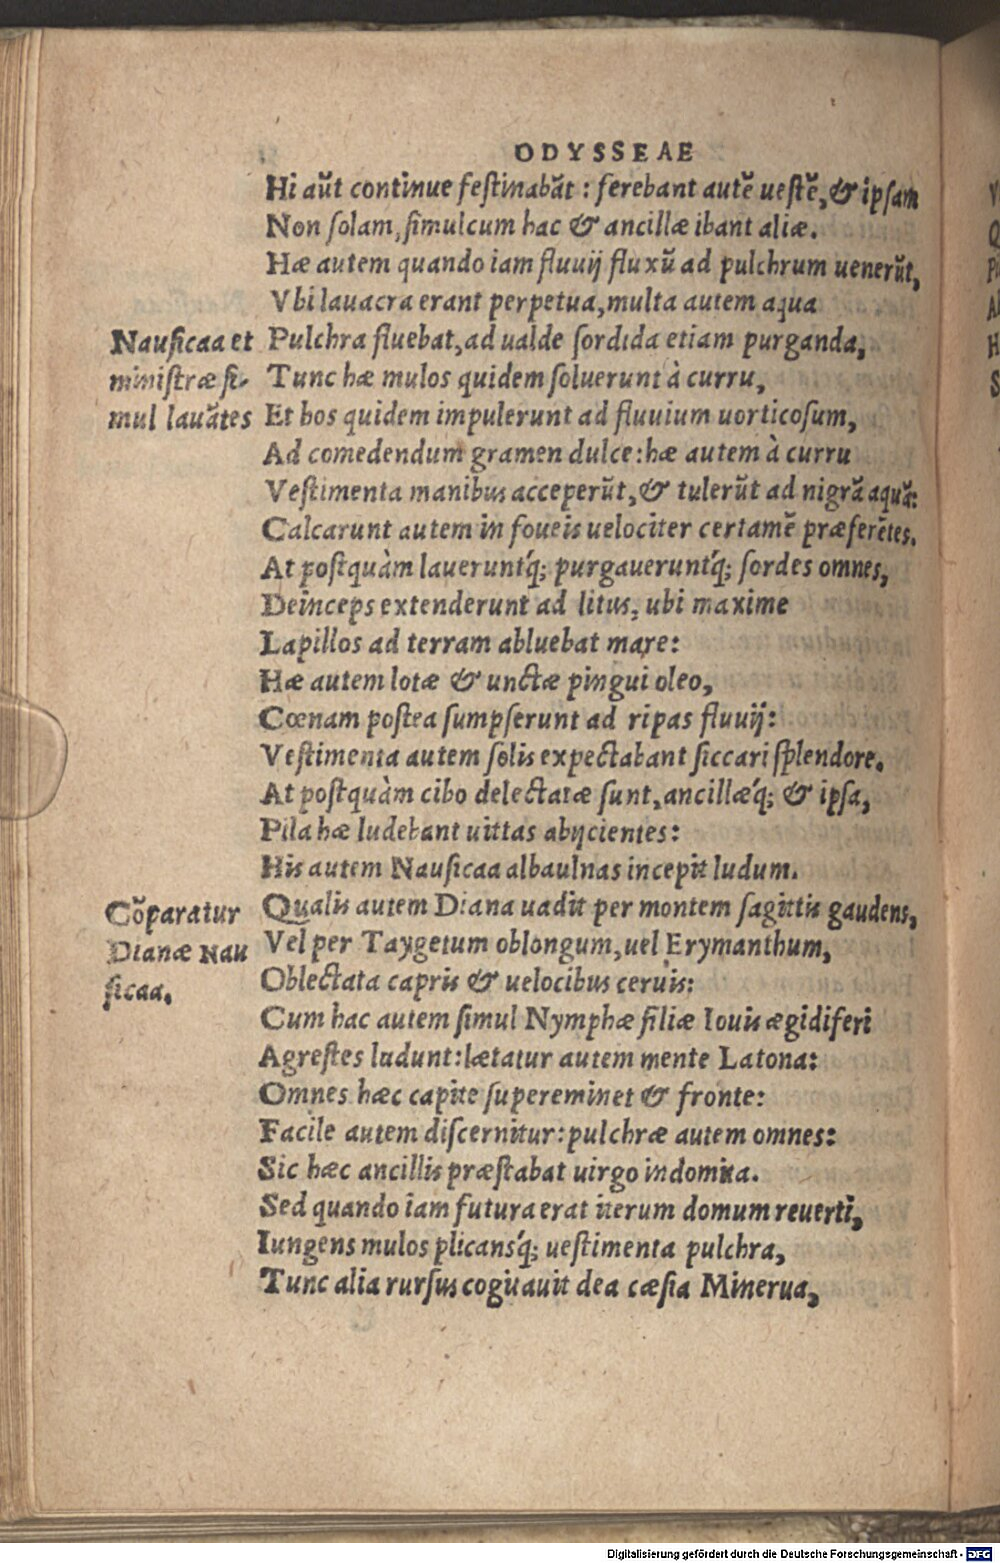 ODYSSEAE
Hi aūt continue feſtinabāt : ferebant autē ueſtē, & ipſam
Non ſolam, ſimulcum hac & ancillæ ibant aliæ.
Hæ autem quando iam fluuij fluxū ad pulchrum uenerūt,
Vbi lauacra erant perpetua, multa autem aqua
Nauſicaa et
miniſtræ ſi-
mul lauātes
Pulchra fluebat, ad ualde ſordida etiam purganda,
Tunc hæ mulos quidem ſoluerunt à curru,
Et hos quidem impulerunt ad fluuium uorticoſum,
Ad comedendum gramen dulce: hæ autem à curru
Veſtimenta manibus acceperūt, & tulerūt ad nigrā aquā:
Calcarunt autem in foueis uelociter certamē præferētes.
At poſtquàm laueruntq́; purgaueruntq́; ſordes omnes,
Deinceps extenderunt ad litus, ubi maxime
Lapillos ad terram abluebat mare:
Hæ autem lotæ & unctæ pingui oleo,
Cœnam poſtea ſumpſerunt ad ripas fluuij:
Veſtimenta autem ſolis expectabant ſiccari ſplendore.
At poſtquàm cibo delectatæ ſunt, ancillæq́; & ipſa,
Pila hæ ludebant uittas abijcientes:
His autem Nauſicaa albaulnas incepit ludum.
Cōparatur
Dianæ Nau
ſicaa.
Qualis autem Diana uadit per montem ſagittis gaudens,
Vel per Taygetum oblongum, uel Erymanthum,
Oblectata capris & uelocibus ceruis:
Cum hac autem ſimul Nymphæ filiæ Iouis ægidiferi
Agreſtes ludunt: lætatur autem mente Latona:
Omnes hæc capite ſupereminet & fronte:
Facile autem diſcernitur: pulchræ autem omnes:
Sic hæc ancillis præſtabat uirgo indomita.
Sed quando iam futura erat iterum domum reuerti,
Iungens mulos plicansq́; ueſtimenta pulchra,
Tunc alia rurſus cogitauit dea cæſia Minerua,
Digitalisierung gefördert durch die Deutsche Forschungsgemeinschaft - DFG